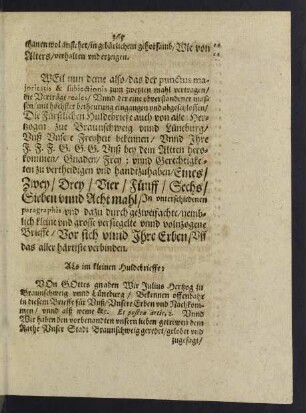 365
thanen wol anstehet/in gebürlichem gehorsamb/Wie von
Alters/verhalten vnd erzeigen.
WEil nun deme also/das der punctus ma-
jestatis & subjectionis zum zweyten mahl vertragen/
die Verträge reales/ Vnnd der eins obverstandener mas-
sen/mit höchster betheurung eingangen vnd abgeschlossen/
Die Fürstlichen Huldebriefe auch von alle Her-
tzogen zu Braunschweig vnnd Lüneburg/
Auß Vnsere Freyheit bekennen/ Vnnd Ihre
F. F. F. G. G. G. Vnß bey dem Alten her-
kommen/ Gnaden/ Frey: vnnd Gerechtigke-
ten zu vertheidigen vnd handtzuhaben/Eines/
Zwey/ Drey/ Vier/ Fünff/ Sechs/
Sieben vnnd Acht mahl/ In vnterschiedenen
paragraphis vnd dazu durch gezweifachte/nemb-
lich kleine vnd grosse versiegelte vnnd volnzogene
Briefe/ Vor sich vnnd Ihre Erben/ Vff
das aller härtiste verbinden.
Als im kleinen Huldebrieffe:
VOn GOttes gnaden Wir Julius Hertzog zu
Braunschweig vnnd Lüneburg/ Bekennen offenbahr
in diesem Briefe für Vnß/Vnsere Erben vnd Nachkom-
men/ vnnd alß weme &c. Et postea artic. 2. Vnnd
Wir haben den vorbenandten vnsern lieben getrewen dem
Rathe Vnser Stadt Braunschweig geredet/gelobet vnd
zugesagt/